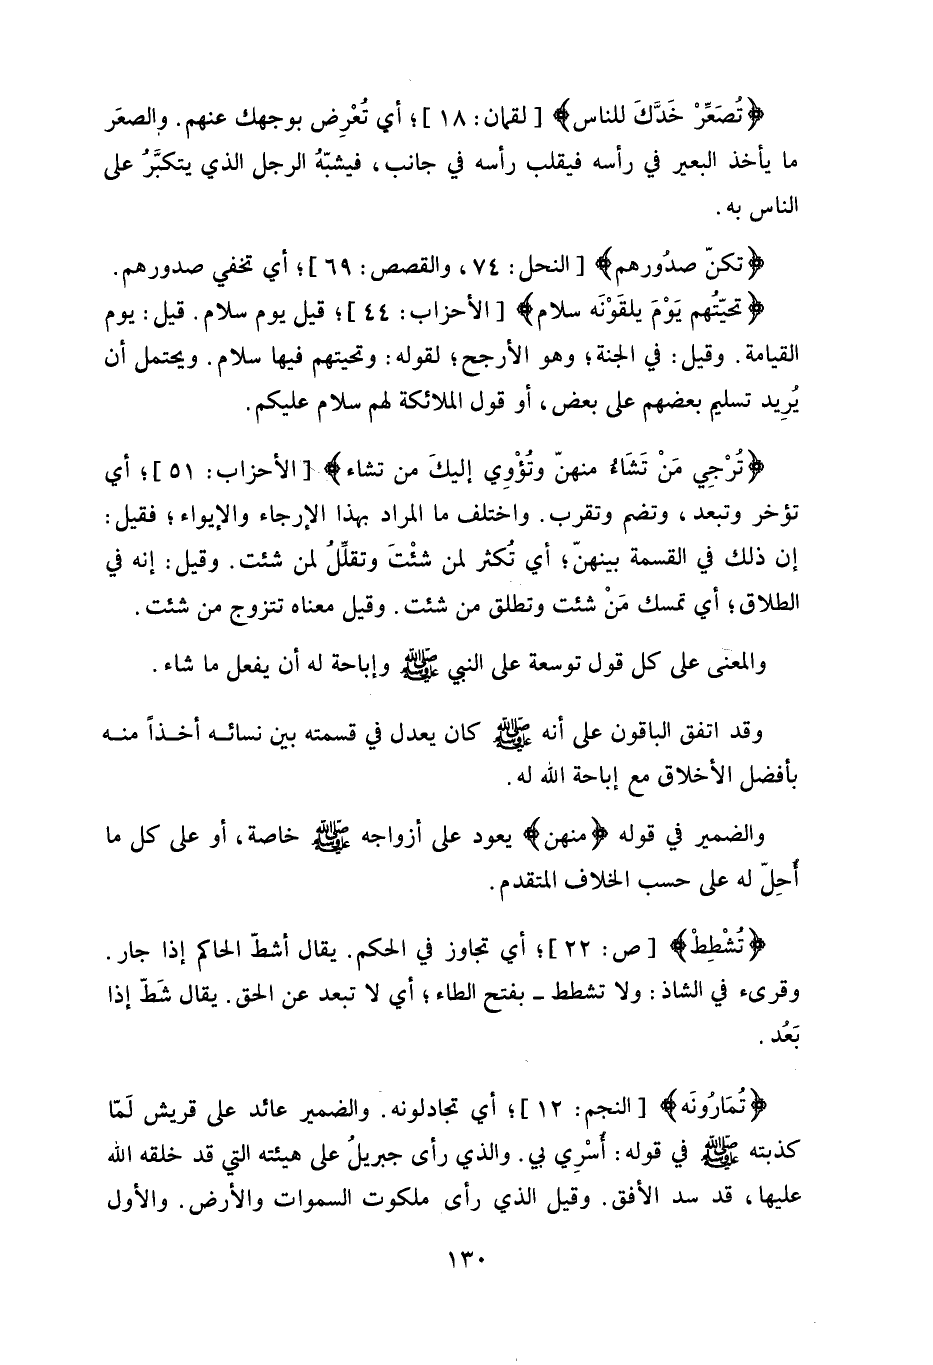 ﴿تُصَعِّرْ خَدَّكَ للناس﴾ [ لقمان: ١٨ ]؛ أي تُعْرِض بوجهك عنهم. والصعَر
ما يأخذ البعير في رأسه فيقلب رأسه في جانب، فيشبّهُ الرجل الذي يتكبَّرُ على
الناس به.
﴿تكنّ صدُورهم﴾ [ النحل: ٧٤، والقصص: ٦٩ ]؛ أي تخفي صدورهم.
﴿تحيّتُهم يَوْمَ يلقَوْنَه سلام﴾ [ الأحزاب: ٤٤ ]؛ قيل يوم سلام. قيل: يوم
القيامة. وقيل: في الجنة؛ وهو الأرجح؛ لقوله: وتحيتهم فيها سلام. ويحتمل أن
يُرِيد تسليم بعضهم على بعض، أو قول الملائكة لهم سلام عليكم.
﴿تُرْجِي مَنْ تَشَاءُ منهنّ وتُؤْوِي إليكَ من تشاء﴾ [ الأحزاب: ٥١ ]؛ أي
تؤخر وتبعد، وتضم وتقرب. واختلف ما المراد بهذا الإرجاء والإيواء؛ فقيل:
إن ذلك في القسمة بينهنّ؛ أي تُكثر لمن شئْتَ وتقلِّلُ لمن شئت. وقيل: إنه في
الطلاق؛ أي تمسك مَنْ شئت وتطلق من شئت. وقيل معناه تتزوج من شئت.
والمعنى على كل قول توسعة على النبي ﷺ وإباحة له أن يفعل ما شاء.
وقد اتفق الباقون على أنه ﷺ كان يعدل في قسمته بين نسائه أخذاً منه
بأفضل الأخلاق مع إباحة الله له.
والضمير في قوله ﴿منهن﴾ يعود على أزواجه ﷺ خاصة، أو على كل ما
أُحِلّ له على حسب الخلاف المتقدم.
﴿تُشْطِطْ﴾ [ ص: ٢٢ ]؛ أي تجاوز في الحكم. يقال أشطّ الحاكم إذا جار.
وقرىء في الشاذ: ولا تشطط ـ بفتح الطاء؛ أي لا تبعد عن الحق. يقال شَطّ إذا
بَعُد.
﴿تُمَارُونَه﴾ [ النجم: ١٢ ]؛ أي تجادلونه. والضمير عائد على قريش لَمّا
كذبته ﷺ في قوله: أُسْرِي بي. والذي رأى جبريلُ على هيئته التي قد خلقه الله
عليها، قد سد الأفق. وقيل الذي رأى ملكوت السموات والأرض. والأول
١٣٠